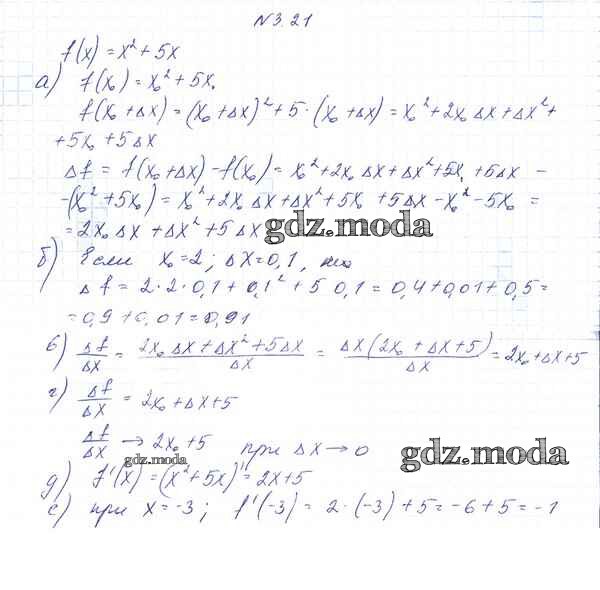 N 3.21
f(x) = x² + 5x
а) f(x₀) = x₀² + 5x₀
f(x₀ + Δx) = (x₀ + Δx)² + 5 · (x₀ + Δx) = x₀² + 2x₀ Δx + Δx² +
+ 5x₀ + 5Δx
Δf = f(x₀ + Δx) - f(x₀) = x₀² + 2x₀ Δx + Δx² + 5x₀ + 5Δx -
- (x₀² + 5x₀) = x₀² + 2x₀ Δx + Δx² + 5x₀ + 5Δx - x₀² - 5x₀ =
= 2x₀ Δx + Δx² + 5Δx
gdz.moda
б) Если x₀ = 2; Δx = 0,1, то
Δf = 2 · 2 · 0,1 + 0,1² + 5 0,1 = 0,4 + 0,01 + 0,5 =
= 0,9 + 0,01 = 0,91
в) Δf/Δx = (2x₀ Δx + Δx² + 5Δx)/Δx = Δx(2x₀ + Δx + 5)/Δx = 2x₀ + Δx + 5
г) Δf/Δx = 2x₀ + Δx + 5
Δf/Δx → 2x₀ + 5 при Δx → 0
gdz.moda
gdz.moda
д) f'(x) = (x² + 5x)' = 2x + 5
е) при x = -3; f'(-3) = 2 · (-3) + 5 = -6 + 5 = -1